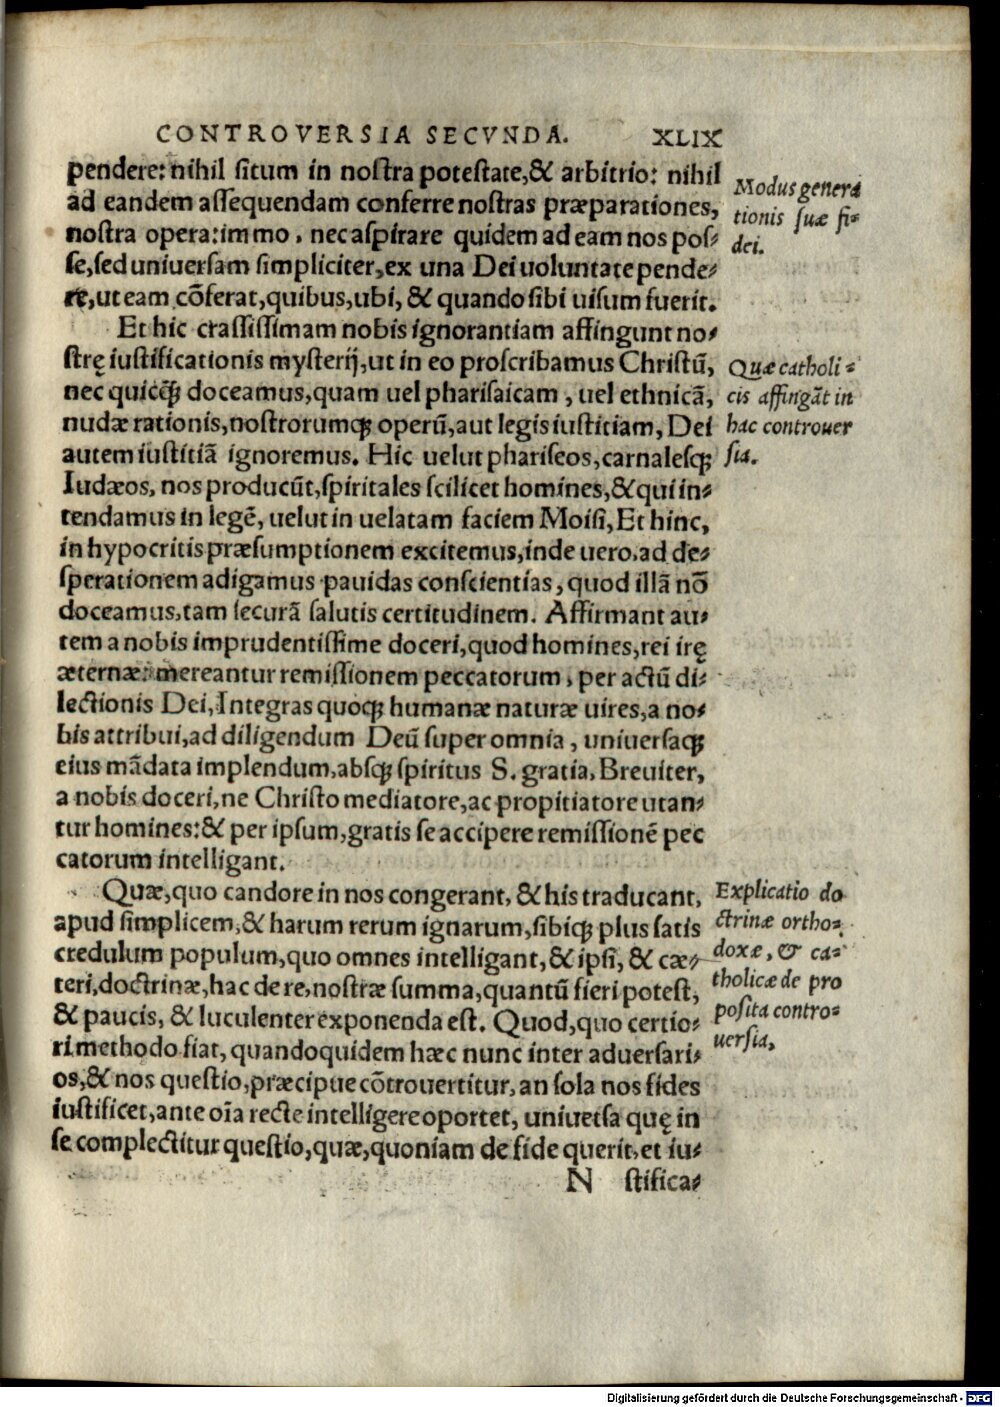 CONTROVERSIA SECVNDA. XLIX
pendere: nihil ſitum in noſtra poteſtate, & arbitrio: nihil
ad eandem aſſequendam conferre noſtras præparationes,
noſtra opera: immo, nec aſpirare quidem ad eam nos poſ⸗
ſe, ſed uniuerſam ſimpliciter, ex una Dei uoluntate pende⸗
re, ut eam cõferat, quibus, ubi, & quando ſibi uiſum fuerit.
Et hic craſſiſſimam nobis ignorantiam affingunt no⸗
ſtrę iuſtificationis myſterij, ut in eo proſcribamus Chriſtũ,
nec quicꝗ̃ doceamus, quam uel phariſaicam, uel ethnicã,
nudæ rationis, noſtrorumqꝫ operũ, aut legis iuſtitiam, Dei
autem iuſtitiã ignoremus. Hic uelut phariſeos, carnaleſqꝫ
Iudæos, nos producũt, ſpiritales ſcilicet homines, & qui in⸗
tendamus in legẽ, uelut in uelatam faciem Moiſi, Et hinc,
in hypocritis præſumptionem excitemus, inde uero, ad de⸗
ſperationem adigamus pauidas conſcientias, quod illã nõ
doceamus, tam ſecurã ſalutis certitudinem. Affirmant au⸗
tem a nobis imprudentiſſime doceri, quod homines, rei irę
æternæ: mereantur remiſſionem peccatorum, per actũ di⸗
lectionis Dei, Integras quoqꝫ humanæ naturæ uires, a no⸗
bis attribui, ad diligendum Deũ ſuper omnia, uniuerſaqꝫ
eius mãdata implendum, abſqꝫ ſpiritus S. gratia, Breuiter,
a nobis doceri, ne Chriſto mediatore, ac propitiatore utan⸗
tur homines: & per ipſum, gratis ſe accipere remiſſionẽ pec
catorum intelligant.
Quæ, quo candore in nos congerant, & his traducant,
apud ſimplicem, & harum rerum ignarum, ſibiqꝫ plus ſatis
credulum populum, quo omnes intelligant, & ipſi, & cæ⸗
teri, doctrinæ, hac de re, noſtræ ſumma, quantũ fieri poteſt,
& paucis, & luculenter exponenda eſt. Quod, quo certio⸗
ri methodo fiat, quandoquidem hæc nunc inter aduerſari⸗
os, & nos queſtio, præcipue cõtrouertitur, an ſola nos fides
iuſtificet, ante oĩa recte intelligere oportet, uniuerſa quę in
ſe complectitur queſtio, quæ, quoniam de fide querit, et iu⸗
N ſtifica⸗
Modus genera
tionis ſuæ fi⸗
dei.
Quæ catholi⸗
cis affingãt in
hac controuer
ſia.
Explicatio do
ctrinæ ortho⸗
doxæ, & ca⸗
tholicæ de pro
poſita contro⸗
uerſia,
Digitalisierung gefördert durch die Deutsche Forschungsgemeinschaft - DFG